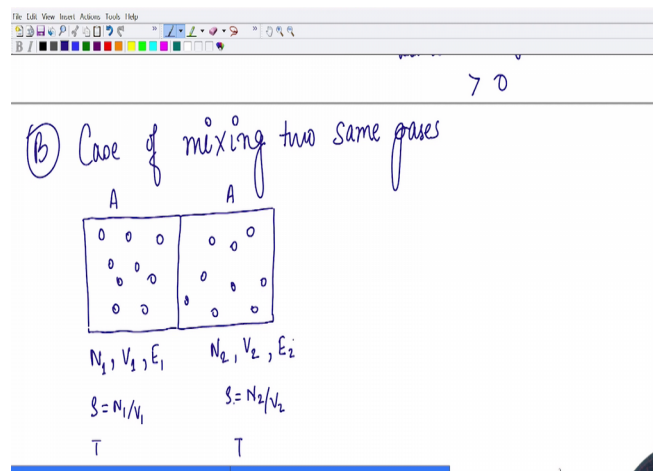 File Edit View Insert Actions Tools Help
B I
> 0
B Case of mixing two same gases
A A
N₁, V₁, E₁ N₂, V₂, E₂
ρ = N₁/V₁ ρ = N₂/V₂
T T